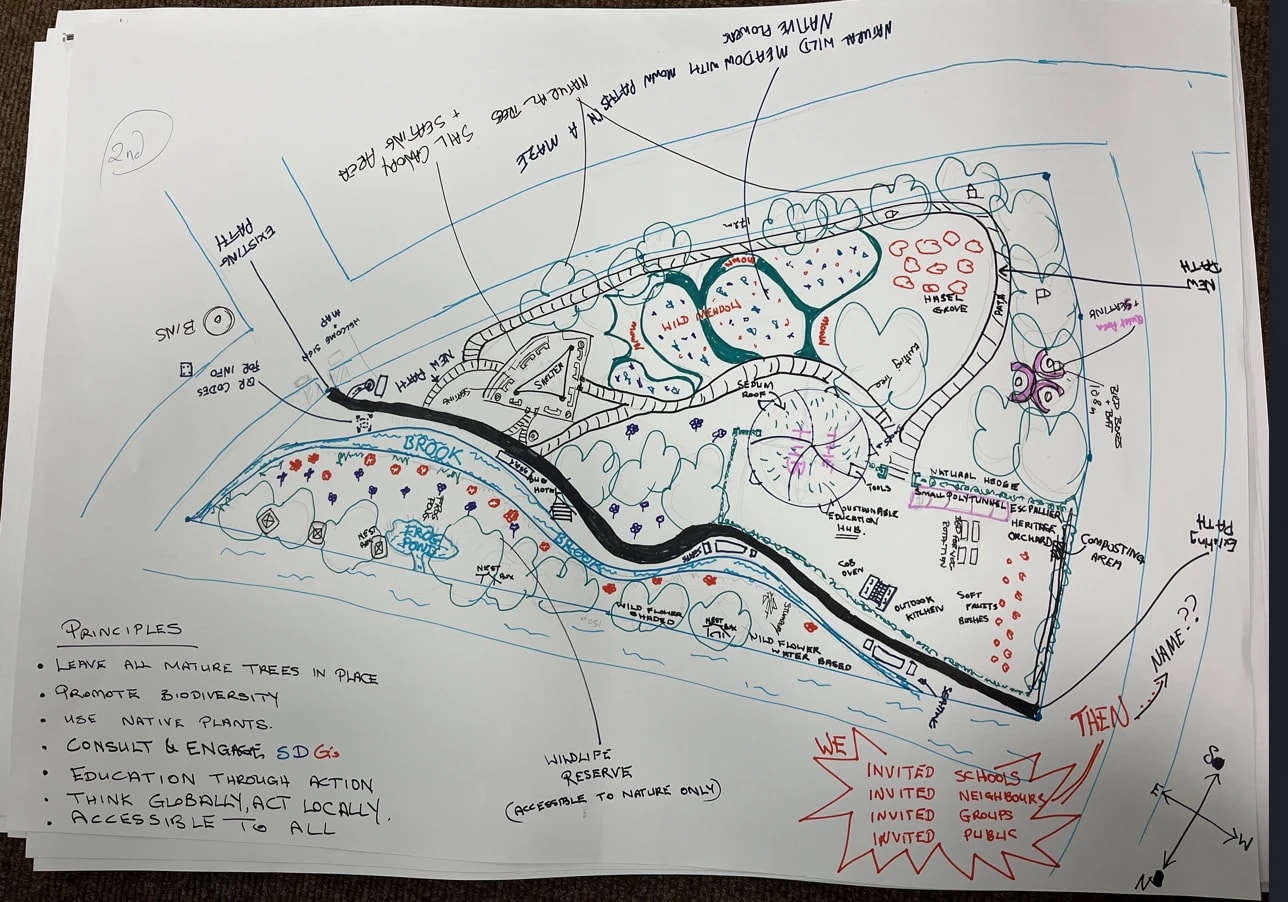 2nd
NATURAL WILD MEADOW WITH MOWN PATHS IN A MAZE
NATIVE FLOWERS
NATURAL TREES
SAIL CANOPY
+ SEATING AREA
EXISTING
PATH
BINS
QR CODES
FOR INFO
WELCOME SIGN
+
MAP
NEW PATH
SEATING
SHELTER
MOWN
WILD MEADOW
MOWN
MOWN
178m
HASEL
GROVE
PATH
NEW
PATH
Quiet Area
+ SEATING
BIRD BOXES
BAT
108m
Existing
Tree
SEDUM
ROOF
TOOLS
SUSTAINABLE
EDUCATION
HUB.
NATURAL HEDGE
SMALL POLYTUNNEL
ESPALLIER
HERITAGE
ORCHARD
COMPOSTING
AREA
COB
OVEN
OUTDOOR
KITCHEN
SOFT
FRUITS
BUSHES
Existing
PATH
BROOK
BUG
HOTEL
BROOK
FROG
POND
NEST
BOX
NEST
BOX
NEST
BOX
WILD FLOWER
SHADED
150m
WILD FLOWER
WATER BASED
SEATING
WILDLIFE
RESERVE
(ACCESSIBLE TO NATURE ONLY)
PRINCIPLES
• LEAVE ALL MATURE TREES IN PLACE
• PROMOTE BIODIVERSITY
• USE NATIVE PLANTS.
• CONSULT & ENGAGE, SDG's
• EDUCATION THROUGH ACTION
• THINK GLOBALLY, ACT LOCALLY.
• ACCESSIBLE TO ALL
WE
INVITED SCHOOLS
INVITED NEIGHBOURS
INVITED GROUPS
INVITED PUBLIC
THEN
NAME:??
S
E
W
N